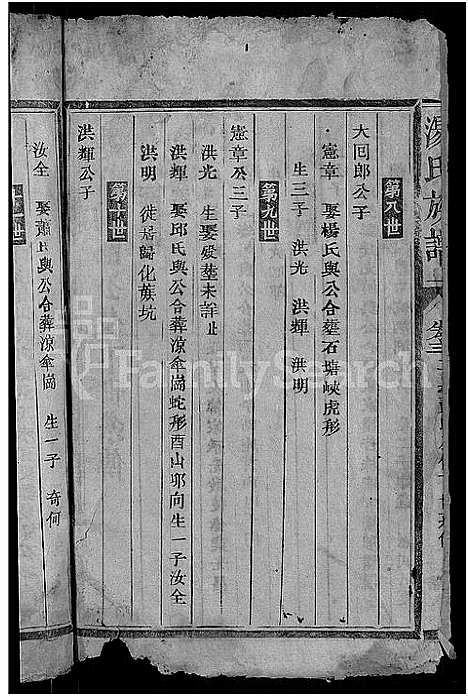 湯氏族譜
卷三
第八世
大回郎公子
憲章 娶楊氏與公合葬石塘峽虎形
生三子 洪光 洪輝 洪明
第九世
憲章公三子
洪光 生娶歿塟未詳止
洪輝 娶邱氏與公合葬凉傘崗蛇形酉山卯向生一子汝全
洪明 徙居歸化蓢坑
第十世
洪輝公子
汝全 娶蕭氏與公合葬凉傘崗 生一子 奇何
世
FamilySearch